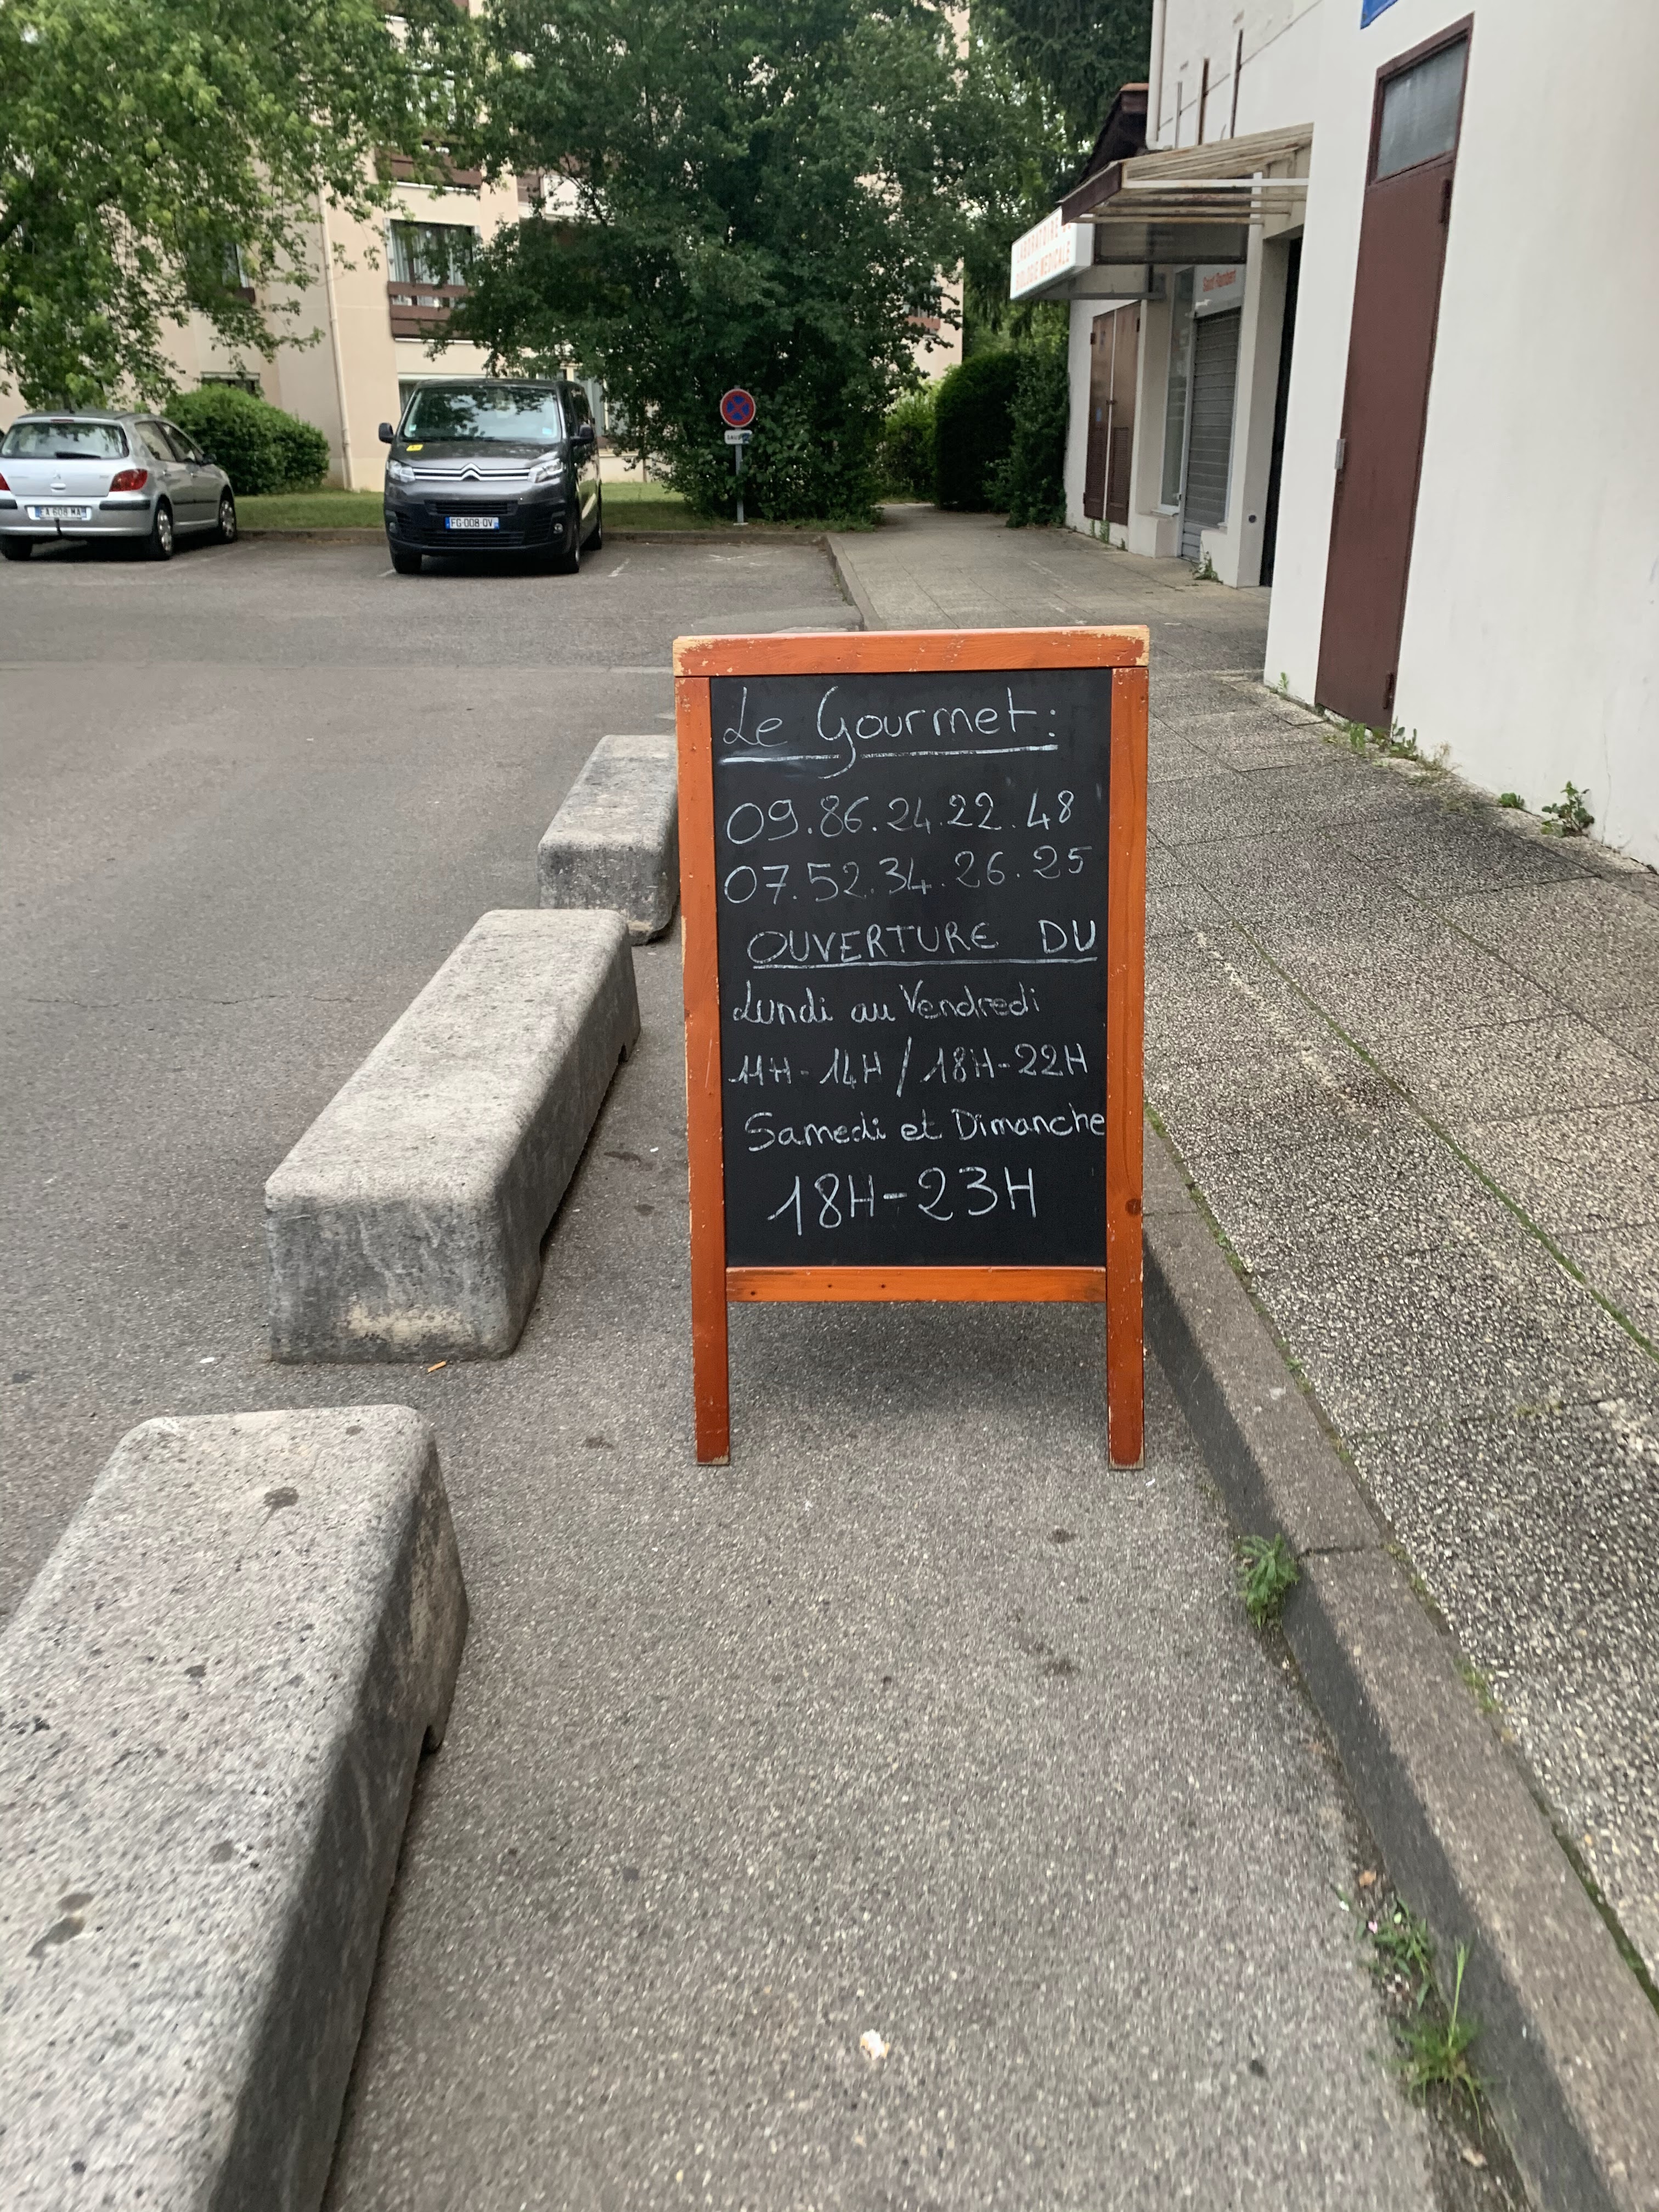 LABORATOIRE DE
BIOLOGIE MEDICALE
FG-008-QV
Le Gourmet:
09.86.24.22.48
07.52.34.26.25
OUVERTURE DU
Lundi au Vendredi
11H-14H / 18H-22H
Samedi et Dimanche
18H-23H